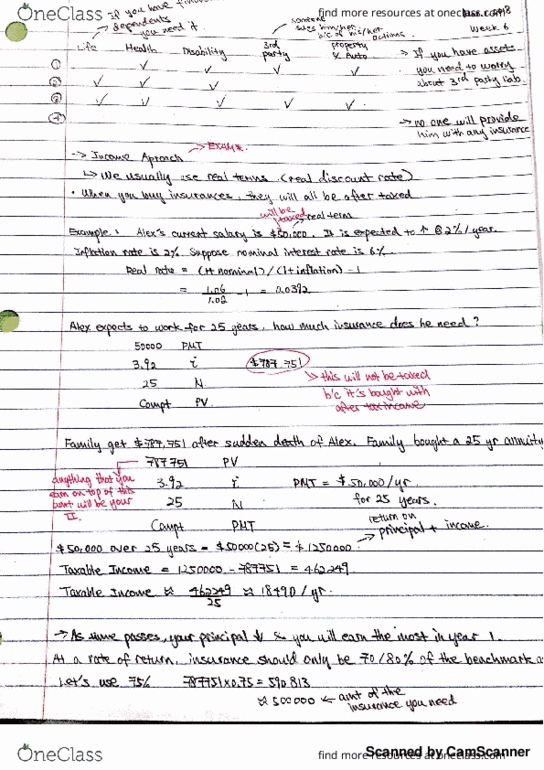 OneClass
find more resources at oneclass.com
If you have
dependents
you need it
b/c of his/her
actions.
Week 6
Life Health Disability 3rd party property & Auto
→ If you have assets
you need to worry
about 3rd party liab.
① ✓ ✓ ✓ ✓
② ✓ ✓ ✓
③ ✓ ✓ ✓ ✓
④
→ no one will provide
him with any insurance
→ Income Aproach →
↳ We usually use real terms (real discount rate)
• When you buy insurances, they will all be after taxed
will be taxed real term
Example: Alex's current salary is $50,000. It is expected to ↑ @ 2%/year.
Inflation rate is 2%. Suppose nominal interest rate is 6%.
Real rate = (1+nominal)/(1+inflation) - 1
= 1.06/1.02 - 1 = 0.0392
Alex expects to work for 25 years, how much insurance does he need?
50000 PMT
3.92 i $787,751
25 N
Compt PV.
→ this will not be taxed
b/c it's bought with
after tax income
Family get $787,751 after sudden death of Alex. Family bought a 25 yr annuity
787751 PV
anything that you
earn on top of this
amt will be your
TI.
3.92 i PMT = $50,000/yr
25 N for 25 years.
Compt PMT
return on
→ principal + income.
$50,000 over 25 years = $50000(25) = $1250000.
Taxable Income = 1250000 - 787751 = 462249
Taxable Income ≈ 462249/25 ≈ 18490/yr.
→ As time passes, your principal ↓ & you will earn the most in year 1.
At a rate of return, insurance should only be 70/80% of the benchmark
Let's use 75% 787751×0.75 = 590,813
≈ 500000 ← amt of the
insurance you need
OneClass
find more resources at oneclass.com
Scanned by CamScanner